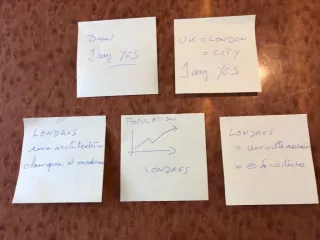 I say YES
UK = LONDON
= CITY
I say YES
LONDRES
une architecture
classique et moderne
POPULATION
LONDRES
LONDRES
= une ville
=